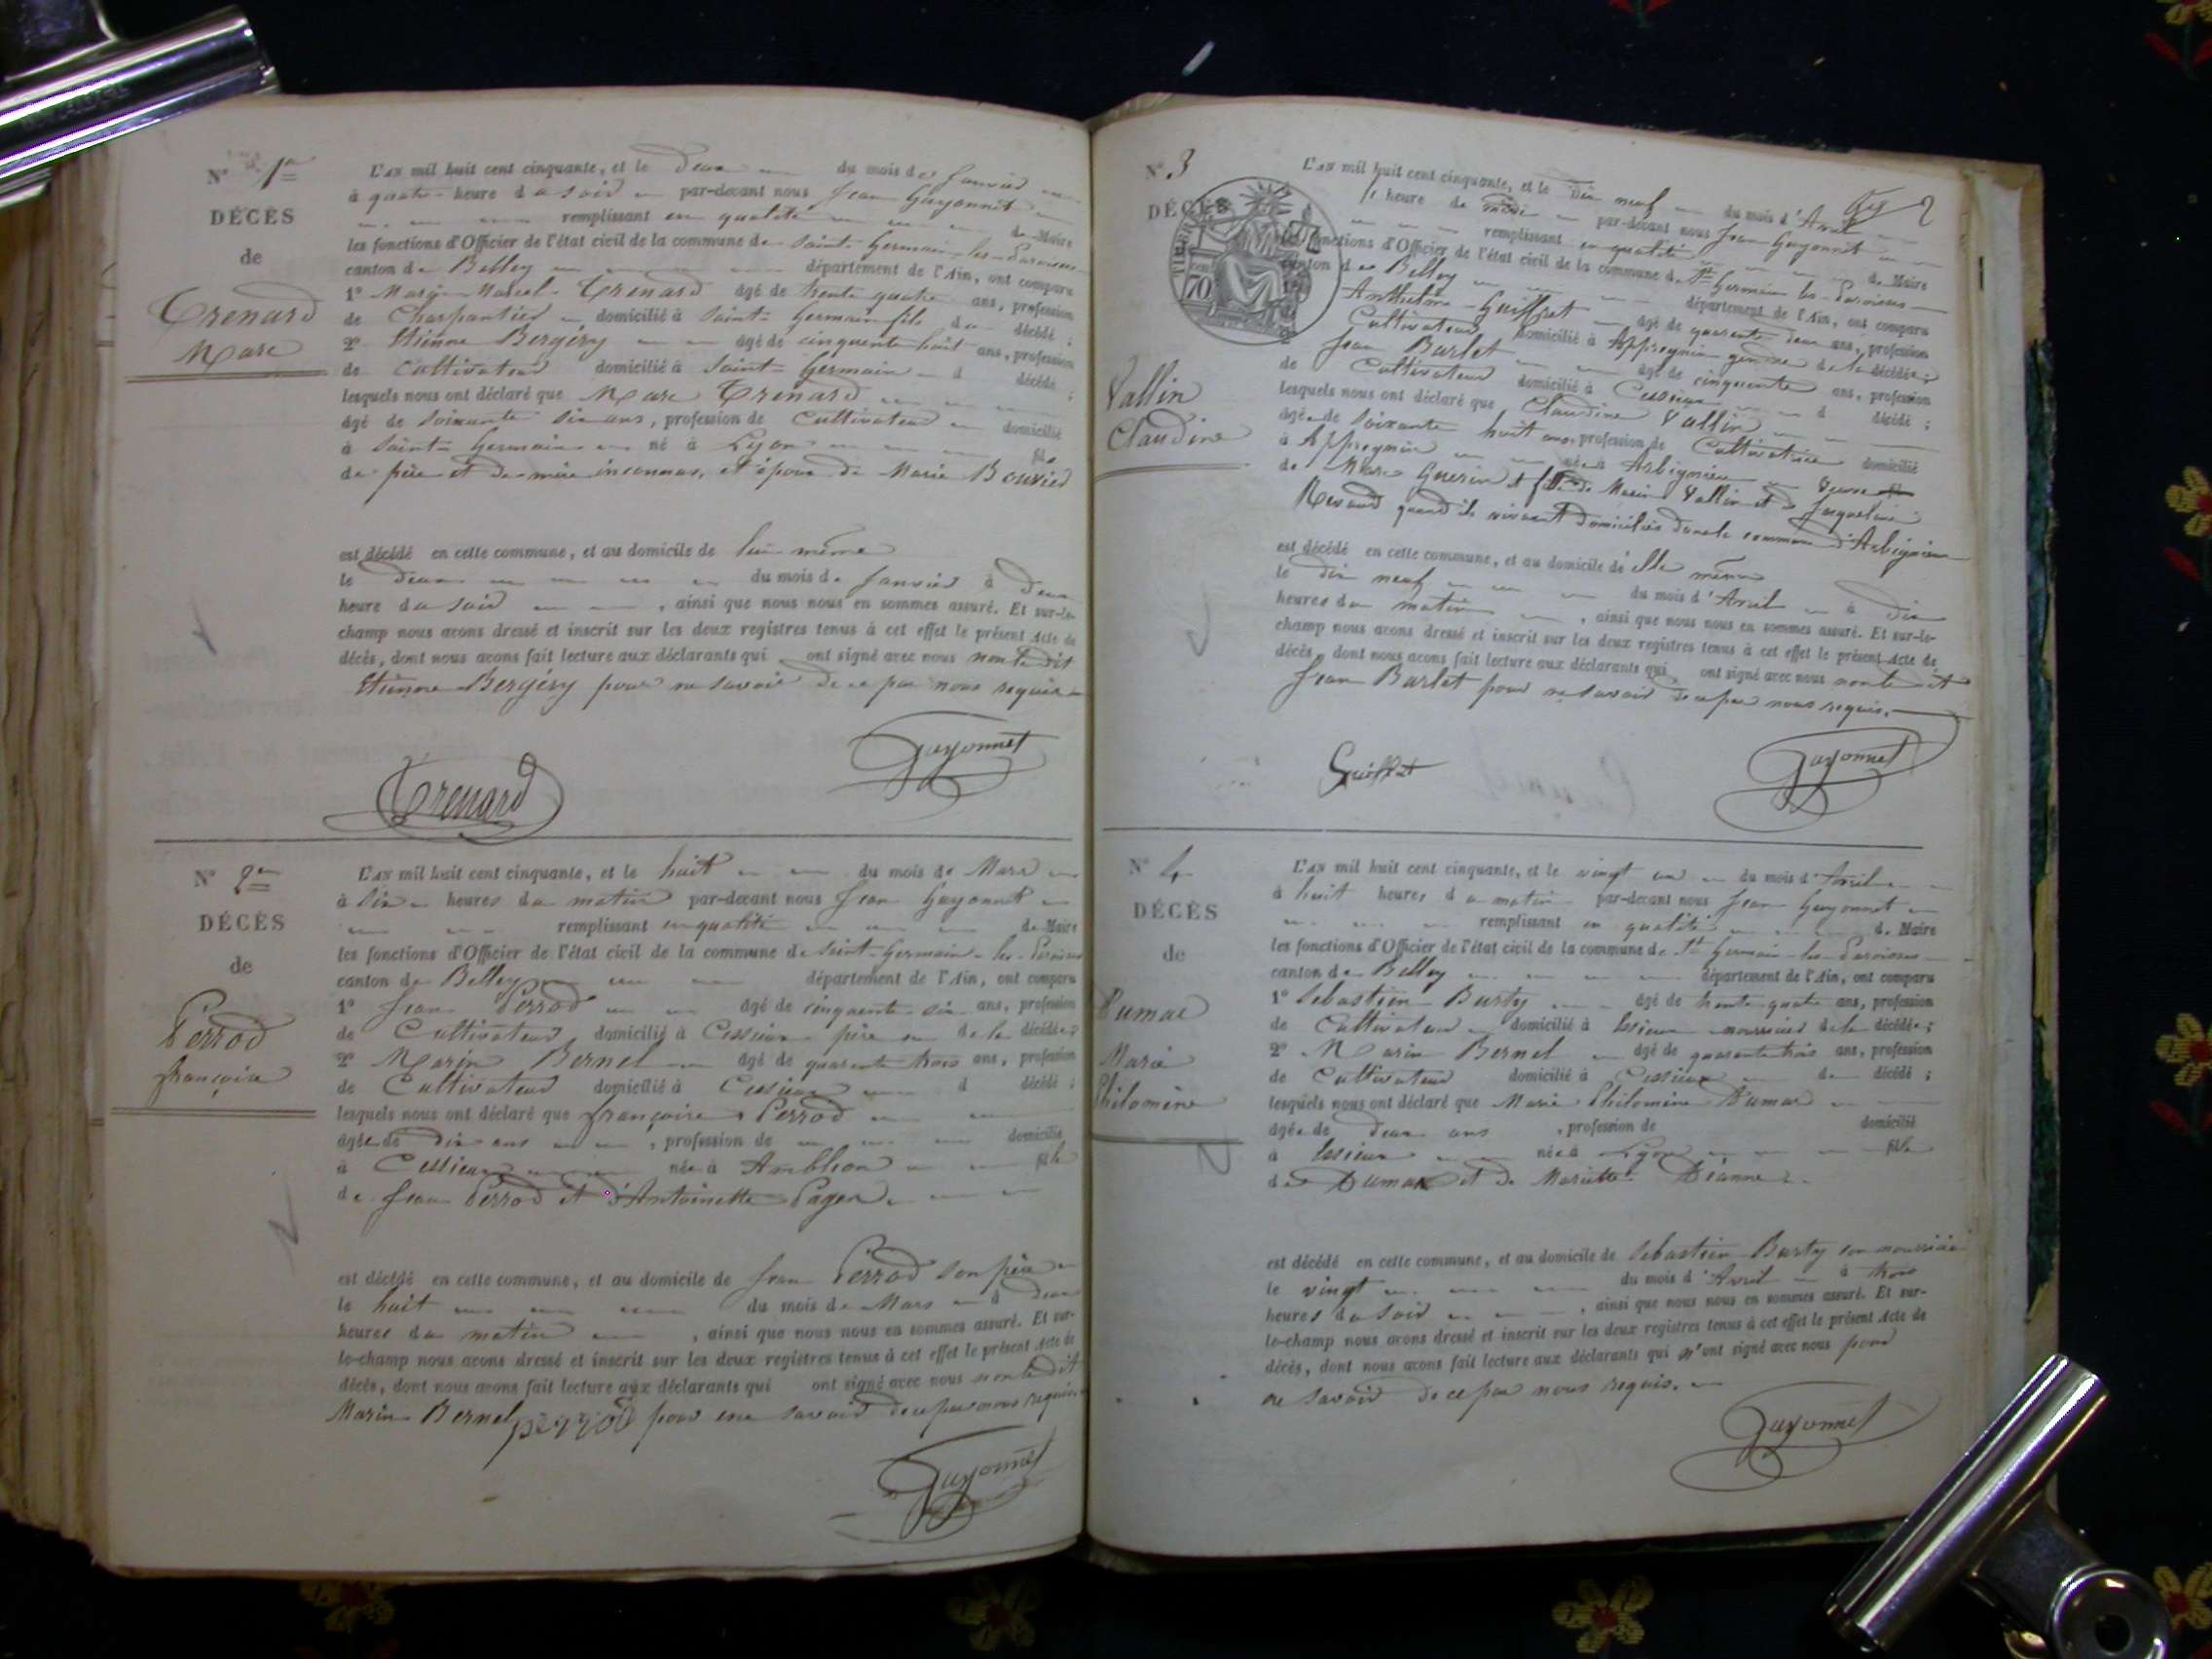 N° 1er
DÉCÈS
de
Trenard
Marc
L'AN mil huit cent cinquante, et le deux du mois de Janvier
à quatre heure du soir par-devant nous Jean Guyonnet
remplissant en qualité de Maire
les fonctions d'Officier de l'état civil de la commune de Saint-Germain-les-Paroisses
canton de Belley département de l'Ain, ont comparu
1° Marcel Trenard âgé de trente quatre ans, profession
de Charpentier domicilié à Saint-Germain fils du décédé ;
2° Etienne Bergery âgé de cinquante huit ans, profession
de Cultivateur domicilié à Saint-Germain d décédé ;
lesquels nous ont déclaré que Marc Trenard
âgé de soixante dix ans, profession de Cultivateur domicilié
à Saint-Germain né à Lyon fils
de père et de mère inconnus, et époux de Marie Bouvier
est décédé en cette commune, et au domicile de lui même
le deux du mois de Janvier à deux
heure du soir , ainsi que nous nous en sommes assuré. Et sur-le-
champ nous avons dressé et inscrit sur les deux registres tenus à cet effet le présent Acte de
décès, dont nous avons fait lecture aux déclarants qui ont signé avec nous non le dit
Etienne Bergery pour ne savoir de ce par nous requis
Guyonnet
Trenard
N° 2me
DÉCÈS
de
Perrod
françoise
L'AN mil huit cent cinquante, et le huit du mois de Mars
à dix heures du matin par-devant nous Jean Guyonnet
remplissant en qualité de Maire
les fonctions d'Officier de l'état civil de la commune de Saint-Germain-les-Paroisses
canton de Belley département de l'Ain, ont comparu
1° Jean Perrod âgé de cinquante six ans, profession
de Cultivateur domicilié à Cessieux père de la décédée ;
2° Marin Bernel âgé de quarante trois ans, profession
de Cultivateur domicilié à Cessieux d décédé ;
lesquels nous ont déclaré que françoise Perrod
âgée de dix ans , profession de domicilié
à Cessieux née à Ambléon fille
de Jean Perrod et d'Antoinette Pagen
est décédé en cette commune, et au domicile de Jean Perrod son père
le huit du mois de Mars à deux
heures du matin , ainsi que nous nous en sommes assuré. Et sur-
le-champ nous avons dressé et inscrit sur les deux registres tenus à cet effet le présent Acte de
décès, dont nous avons fait lecture aux déclarants qui ont signé avec nous non le dit
Marin Bernel pour ne savoir de ce par nous requis
perrod
Guyonnet
N° 3
DÉCÈS
TIMBRE
70
Vallin
Claudine
2
L'AN mil huit cent cinquante, et le dix neuf du mois d'Avril
heure de midi par-devant nous Jean Guyonnet
remplissant en qualité de Maire
les fonctions d'Officier de l'état civil de la commune de St Germain les Paroisses
canton de Belley département de l'Ain, ont comparu
Anthelme Guiffret âgé de quarante deux ans, profession
Cultivateur domicilié à Appregnin gendre de la décédée ;
Jean Burlet âgé de cinquante ans, profession
de Cultivateur domicilié à Cessieux d décédé ;
lesquels nous ont déclaré que Claudine Vallin
âgée de soixante huit ans, profession de Cultivatrice domicilié
à Appregnin née à Arbignieu veuve
de Marc Guerin et fille de Marin Vallin et Jacqueline
Revaud quand ils vivaient domiciliés dans la commune d'Arbignieu
est décédé en cette commune, et au domicile d'elle même
le dix neuf du mois d'Avril à dix
heures du matin , ainsi que nous nous en sommes assuré. Et sur-le-
champ nous avons dressé et inscrit sur les deux registres tenus à cet effet le présent Acte de
décès, dont nous avons fait lecture aux déclarants qui ont signé avec nous non le dit
Jean Burlet pour ne savoir de ce par nous requis.
Guiffret
Guyonnet
N° 4
DÉCÈS
de
Dumas
Marie
Philomène
L'AN mil huit cent cinquante, et le vingt un du mois d'Avril
à huit heures du matin par-devant nous Jean Guyonnet
remplissant en qualité de Maire
les fonctions d'Officier de l'état civil de la commune de St Germain-les-Paroisses
canton de Belley département de l'Ain, ont comparu
1° Sebastien Burty âgé de trente quatre ans, profession
de Cultivateur domicilié à Essieux nourricier de la décédée ;
2° Marin Bernel âgé de quarante trois ans, profession
de Cultivateur domicilié à Cessieux d décédé ;
lesquels nous ont déclaré que Marie Philomène Dumas
âgée de deux ans , profession de domicilié
à Essieux née à Lyon fille
de Dumas et de Mariette Déanne
est décédé en cette commune, et au domicile de Sebastien Burty son nourricier
le vingt du mois d'Avril à trois
heures du soir , ainsi que nous nous en sommes assuré. Et sur-
le-champ nous avons dressé et inscrit sur les deux registres tenus à cet effet le présent Acte de
décès, dont nous avons fait lecture aux déclarants qui n'ont signé avec nous pour
ne savoir de ce par nous requis.
Guyonnet